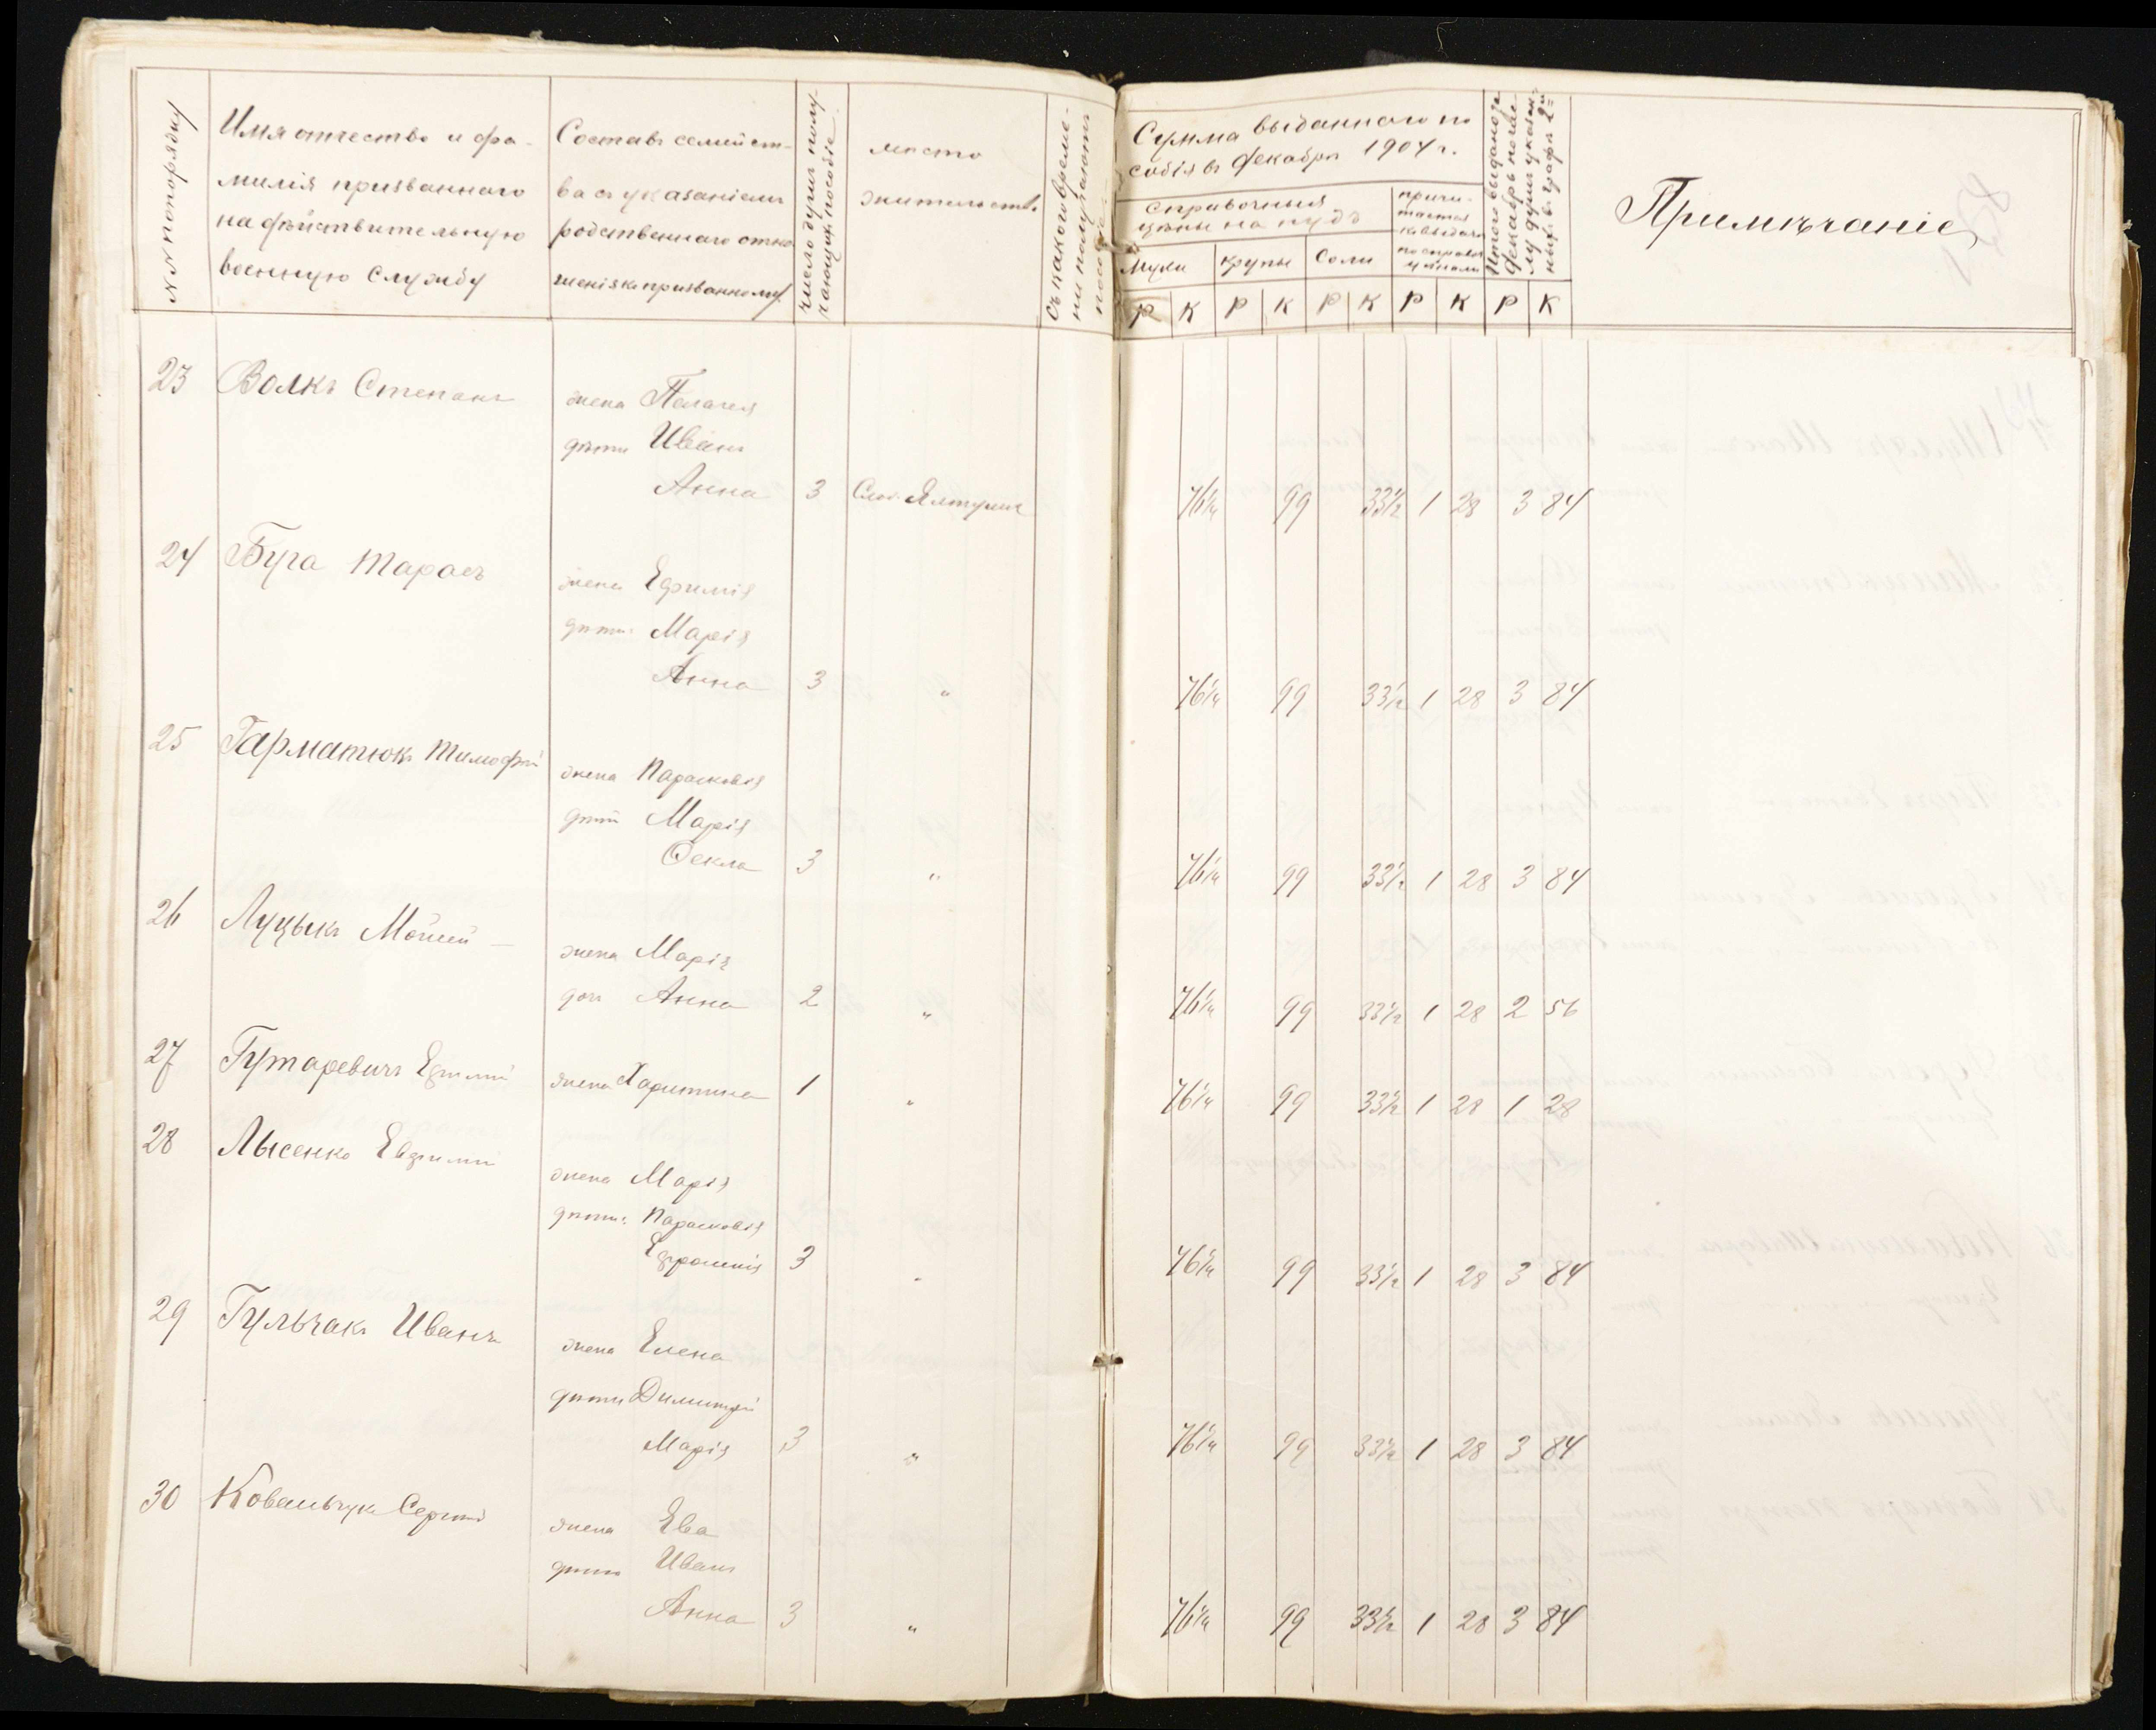 №№ по порядку
Имя отчество и фа-
милія призваннаго
на дѣйствительную
военную службу
Составъ семейст-
ва съ указаніемъ
родственнаго отно
шенія къ призванному
число душъ полу-
чающихъ пособіе
мѣсто
жительства
Съ какого време-
ни получаютъ
пособіе
Сумма выданнаго по
собія въ декабрѣ 1904 г.
справочныя
цѣны на пудъ
муки крупы соли
причи-
тается
къ выдачѣ
по справоч
цѣнамъ
Итого выдано за
декабрь
Р К Р К Р К Р К Р К
Примѣчаніе
23 Волкъ Степанъ
жена Пелагея
дѣти Иванъ
Анна 3 Слоб. Ялтушк 76¼ 99 33½ 1 28 3 84
24 Буга Тарасъ
жена Ефимія
дѣти: Марія
Анна 3 " 76¼ 99 33½ 1 28 3 84
25 Гарматюкъ Тимофей
жена Парасковія
дѣти Марія
Фекла 3 " 76¼ 99 33½ 1 28 3 84
26 Луцыкъ Мойсей —
жена Марія
дочь Анна 2 " 76¼ 99 33½ 1 28 2 56
27 Гутаревичъ Ефимій жена Харитина 1 " 76¼ 99 33½ 1 28 1 28
28 Лысенко Евфимій
жена Марія
дѣти: Парасковія
Ефросинія 3 " 76¼ 99 33½ 1 28 3 84
29 Гульчакъ Иванъ
жена Елена
дѣти Димитрій
Марія 3 " 76¼ 99 33½ 1 28 3 84
30 Ковальчукъ Сергій
жена Ева
дѣти Иванъ
Анна 3 " 76¼ 99 33½ 1 28 3 84